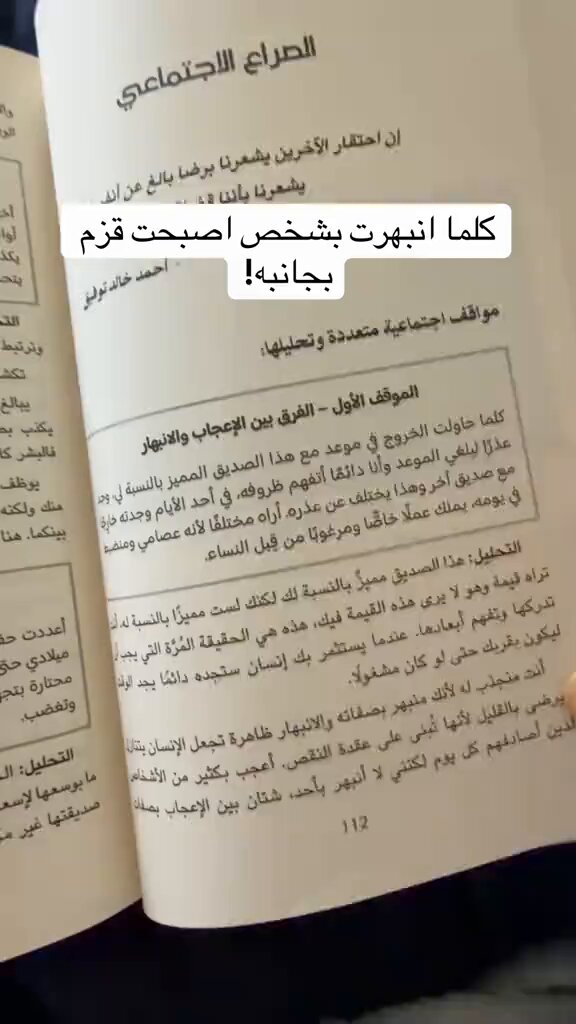 الصراع الاجتماعي
إن احتقار الآخرين يشعرنا برضا بالغ عن
يشعرنا بأننا
كلما انبهرت بشخص اصبحت قزم
بجانبه!
احمد خالد توفيق
مواقف اجتماعية متعددة وتحليلها:
الموقف الأول – الفرق بين الإعجاب والانبهار
كلما حاولت الخروج في موعد مع هذا الصديق المميز بالنسبة لي،
عذرًا ليلغي الموعد وأنا دائمًا أتفهم ظروفه، في أحد الأيام وجدته
مع صديق آخر وهذا يختلف عن عذره. أراه مختلفًا لأنه عصامي
في يومه، يملك عملًا خاصًّا ومرغوبًا من قِبل النساء.
التحليل: هذا الصديق مميزٌ بالنسبة لك لكنك لست مميزًا بالنسبة له،
تراه قيمة وهو لا يرى هذه القيمة فيك، هذه هي الحقيقة المُرَّة التي يجب
تدركها وتفهم أبعادها. عندما يستثمر بك إنسان ستجده دائمًا يجد
ليكون بقربك حتى لو كان مشغولًا.
أنت منجذب له لأنك منبهر بصفاته والانبهار ظاهرة تجعل الإنسان
يرضى بالقليل لأنها تُبنى على عقدة النقص. أعجب بكثير من
الذين أصادفهم كل يوم لكنني لا أنبهر بأحد، شتان بين الإعجاب
112
وترتبط
يبالغ
يكذب
فالبشر
يوظف
منك ولكنه
بينكما. هنا
أعددت
ميلادي
محتارة
وتغضب.
التحليل:
ما بوسعها
صديقتها غير